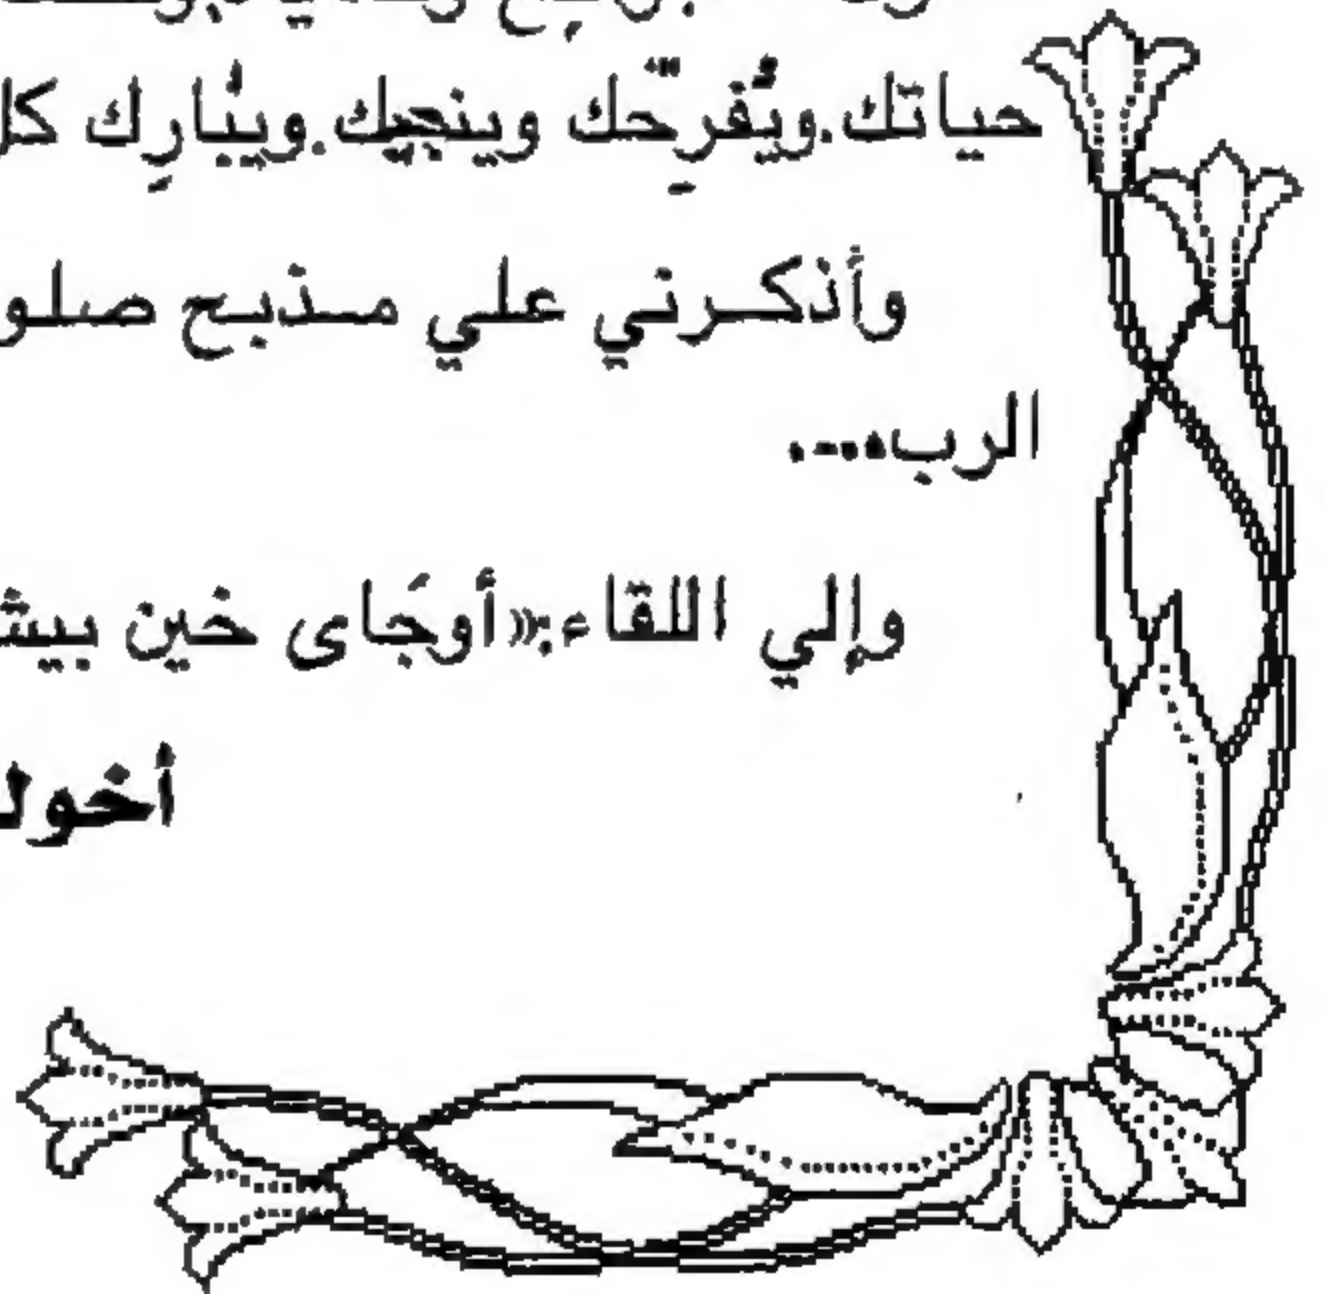 حياتك.ويُفرِّحك وينجيك.ويُبارِك كل
وأذكرني علي مذبح صلو
الرب....
وإلي اللقاء:«أوجَاى خين بيش
أخو